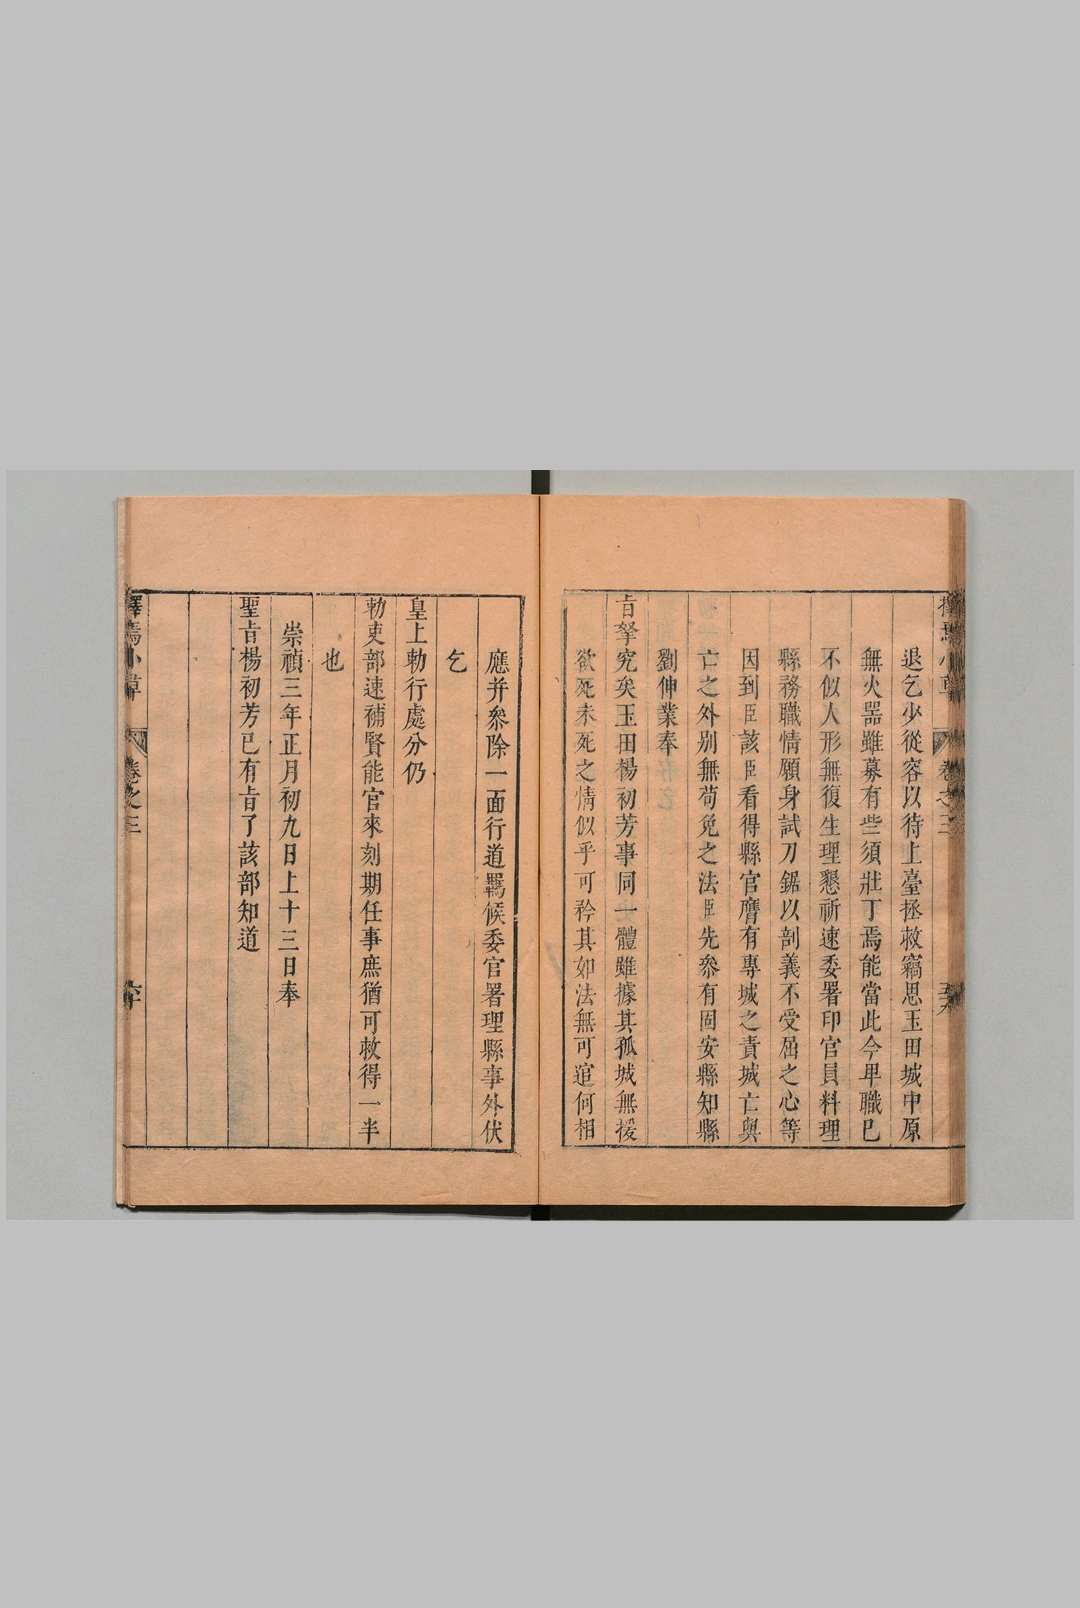 退乞少從容以待上臺拯救竊思玉田城中原
無火噐雖募有些須壯丁焉能當此今卑職已
不似人形無復生理懇祈速委署印官員料理
縣務職情願身試刀鋸以剖義不受屈之心等
因到臣該臣看得縣官膺有專城之責城亡與
亡之外別無苟免之法臣先叅有固安縣知縣
劉伸業奉
旨拏究矣玉田楊初芳事同一體雖據其孤城無援
欲死未死之情似乎可矜其如法無可逭何相
應并叅除一面行道羈候委官署理縣事外伏
乞
皇上勅行處分仍
勅吏部速補賢能官來刻期任事庶猶可救得一半
也
崇禎三年正月初九日上十三日奉
聖旨楊初芳已有旨了該部知道
卷之三
六十